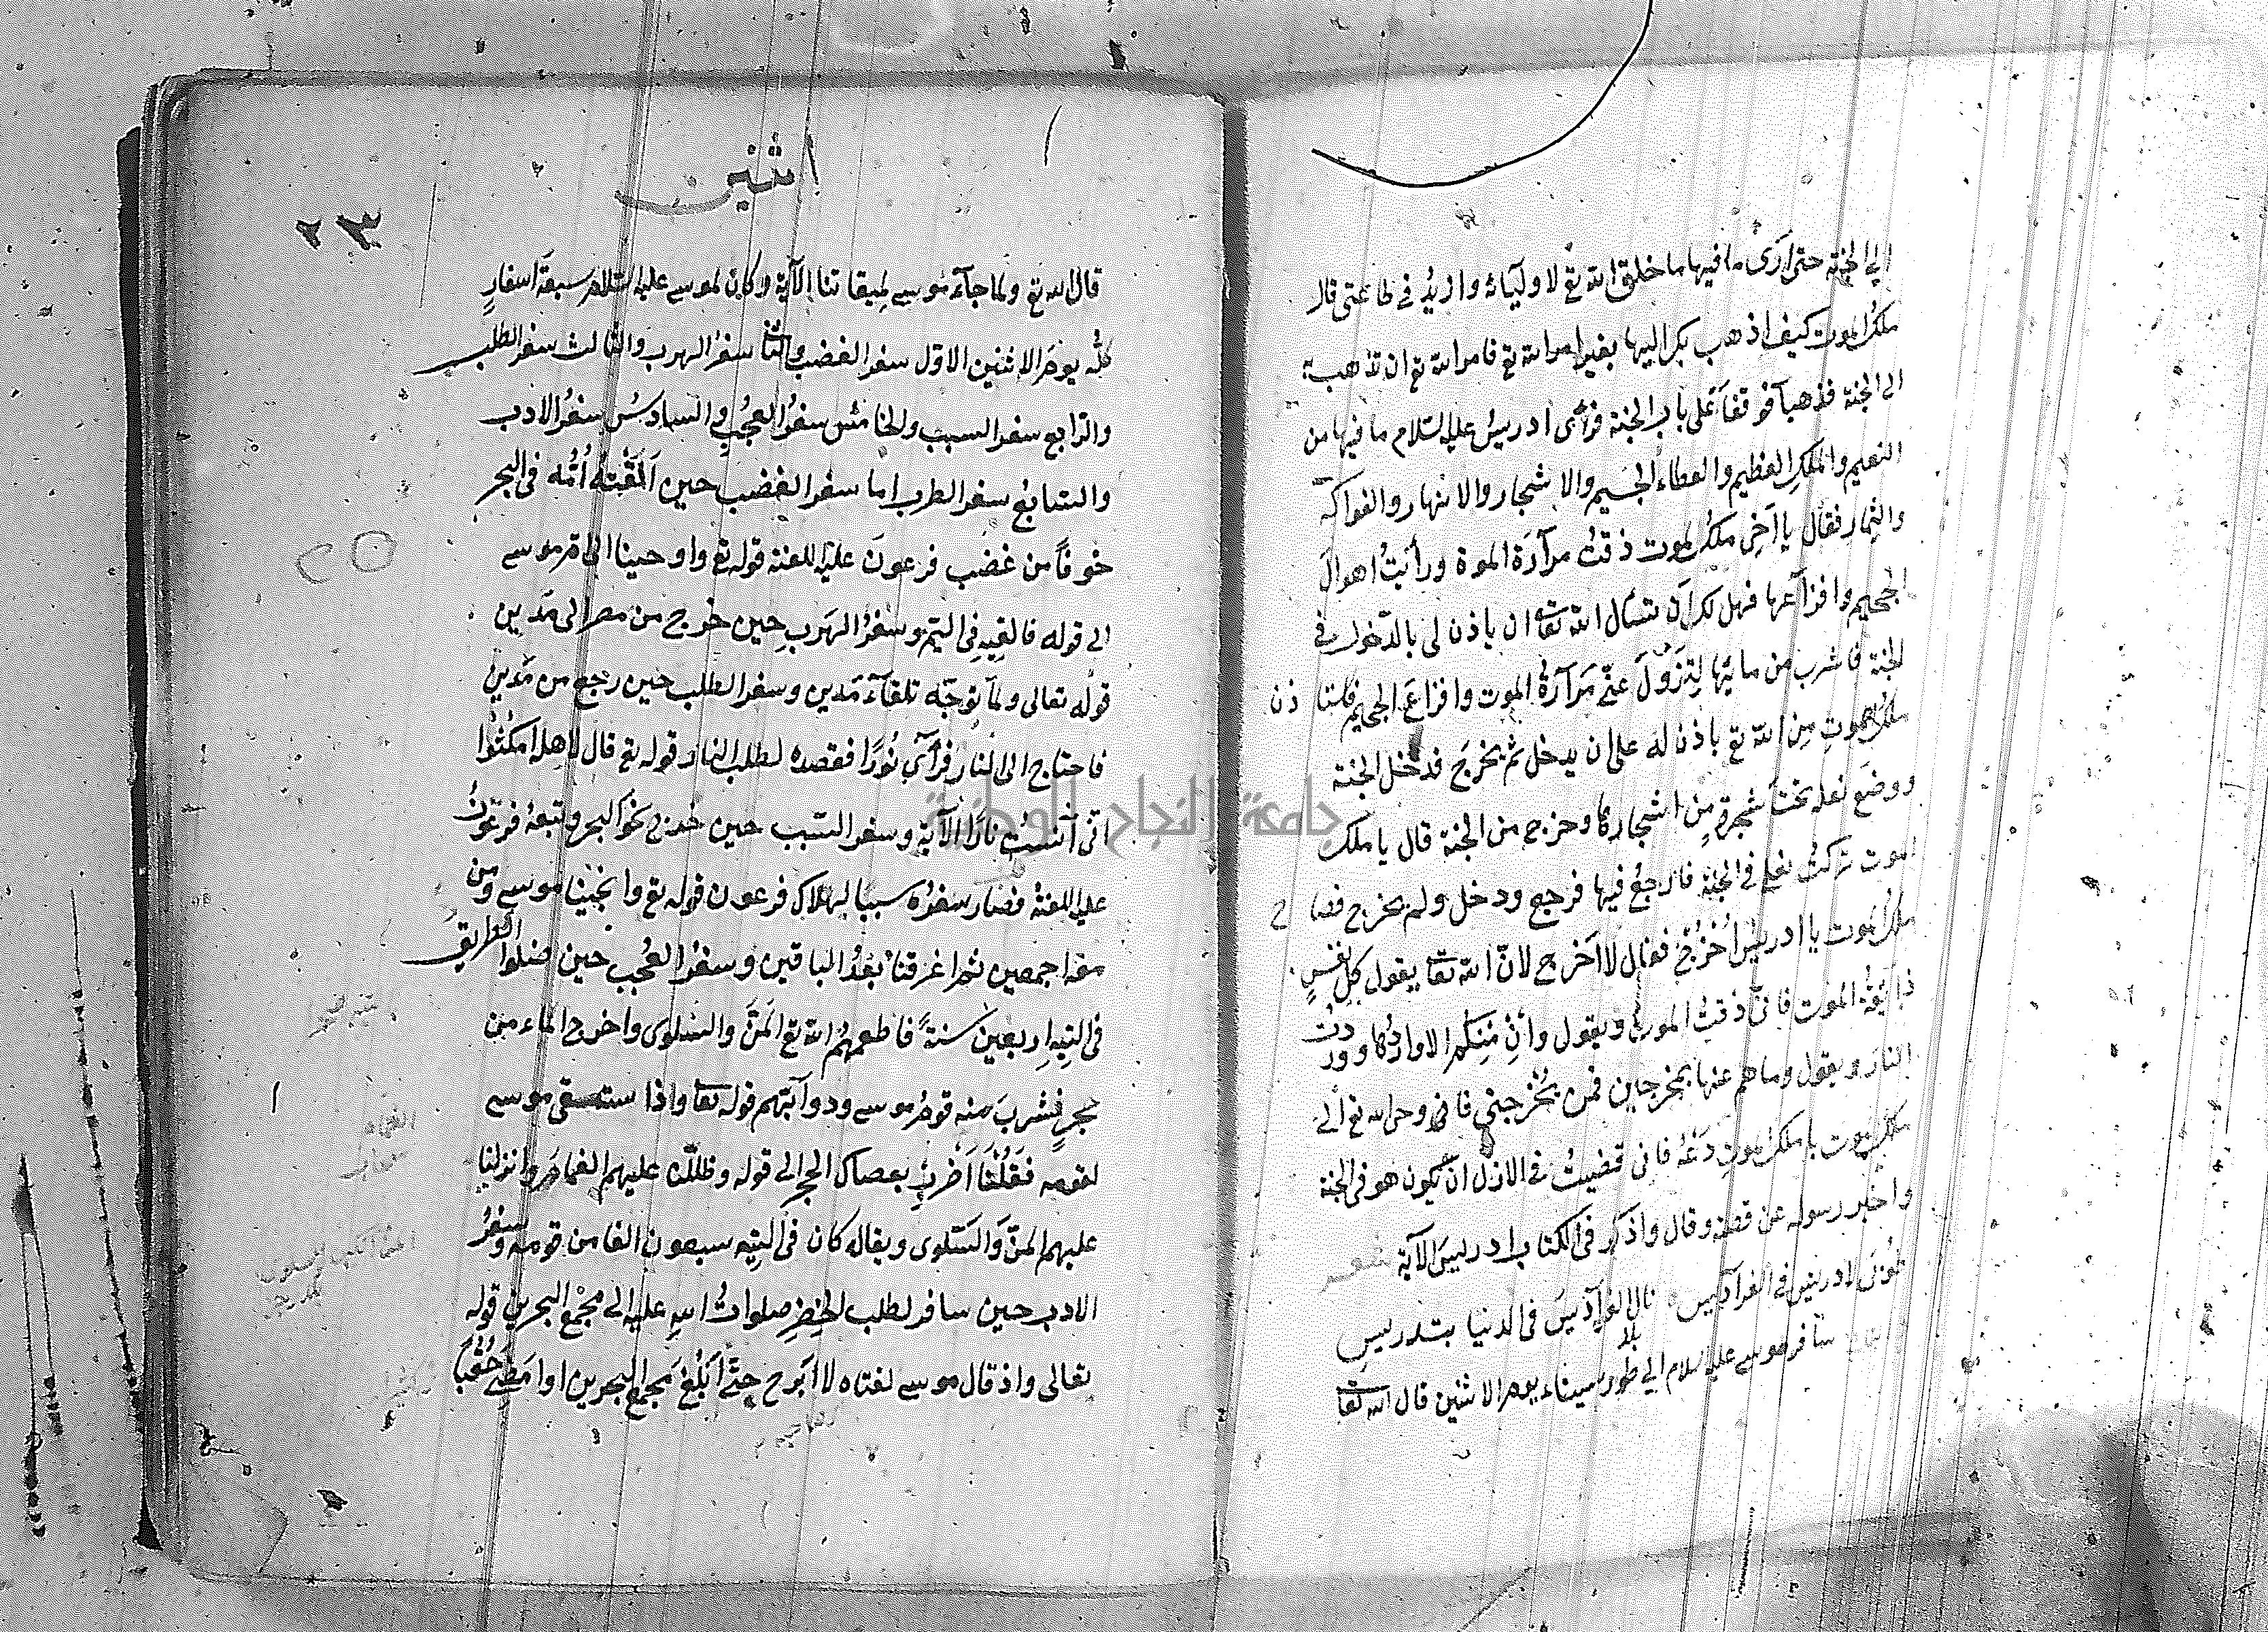 الى الجنة حتى ارى ما فيها ما خلق الله تع لاوليائه وازيد في طاعتى قال
ملك الموت كيف اذهب بك اليها بغير امر الله تع فامر الله تع ان تذهب
الى الجنة فذهبا فوقفا على باب الجنة فرأى ادريس عليه السلام ما فيها من
النعيم والملك العظيم والعطاء الجسيم والاشجار والانهار والفواكه
والثمار فقال يا اخى ملك الموت ذقت مرارة الموة ورأيت اهوال
الجحيم وافزاعها فهل لك ان تسأل الله تعا ان ياذن لى بالدخول في
الجنة فاشرب من مائها لتزول عنى مرارة الموت وافزاع الجحيم فلستا ذن
ملك الموت من الله تع باذن له على ان يدخل ثم يخرج فدخل الجنة
ووضع نعله تحت شجرة من اشجارها وخرج من الجنة قال يا ملك
الموت تركت نعلى في الجنة فارجع فيها فرجع ودخل ولم يخرج فصاح
ملك الموت يا ادريس اخرج فقال لا اخرج لان الله تعا يقول كل نفس
ذائقة الموت فانى ذقت الموت ويقول وان منكم الا واردها ووردت
النار ويقول وما هم عنها بمخرجين فمن يخرجنى فاوحى الله تع الى
ملك الموت يا ملك الموت دعه فانى قضيت في الازل ان يكون هو في الجنة
واخبر رسوله عن قصته وقال واذكر في الكتاب ادريس الآية شعر
طوبى لادريس في الفراديس نال الفراديس في الدنيا بتدريس
سافر موسى عليه السلام الى طور سيناء يوم الاثنين قال الله تعا
اثنين
٢٣
قال الله تع ولما جاء موسى لميقاتنا الآية وكان لموسى عليه السلام سبعة اسفار
كله يوم الاثنين الاول سفر الغضب والثانى سفر الهرب والثالث سفر الطلب
والرابع سفر السبب والخامس سفر العجب والسادس سفر الادب
والسابع سفر الطرب اما سفر الغضب حين القته امه في البحر
خوفا من غضب فرعون عليه اللعنة قوله تع واوحينا الى ام موسى
الى قوله فالقيه في اليم وسفر الهرب حين خرج من مصر الى مدين
قوله تعالى ولما توجه تلقاء مدين وسفر الطلب حين رجع من مدين
فاحتاج الى النار فرأى نورا فقصده لطلب النار قوله تع قال لاهله امكثوا
انى آنست نارا الآية وسفر السبب حين خرج نحو البحر وتبعه فرعون
عليه اللعنة فصار سفره سببا لهلاك فرعون قوله تع وانجينا موسى ومن
معه اجمعين ثم اغرقنا بعد الباقين وسفر العجب حين ضلوا الطريق
في التيه اربعين سنة فاطعمهم الله تع المن والسلوى واخرج الماء من
حجر فشرب منه قوم موسى ودوابهم قوله تعا واذا ستسقى موسى
لقومه فقلنا اضرب بعصاك الحجر الى قوله وظللنا عليهم الغمام وانزلنا
عليهم المن والسلوى ويقال كان في التيه سبعون الفا من قومه وسفر
الادب حين سافر لطلب الخضر صلوات الله عليه الى مجمع البحرين قوله
تعالى واذ قال موسى لفتاه لا ابرح حتى ابلغ مجمع البحرين او امضى حقبا
جامعة النجاح الوطنية